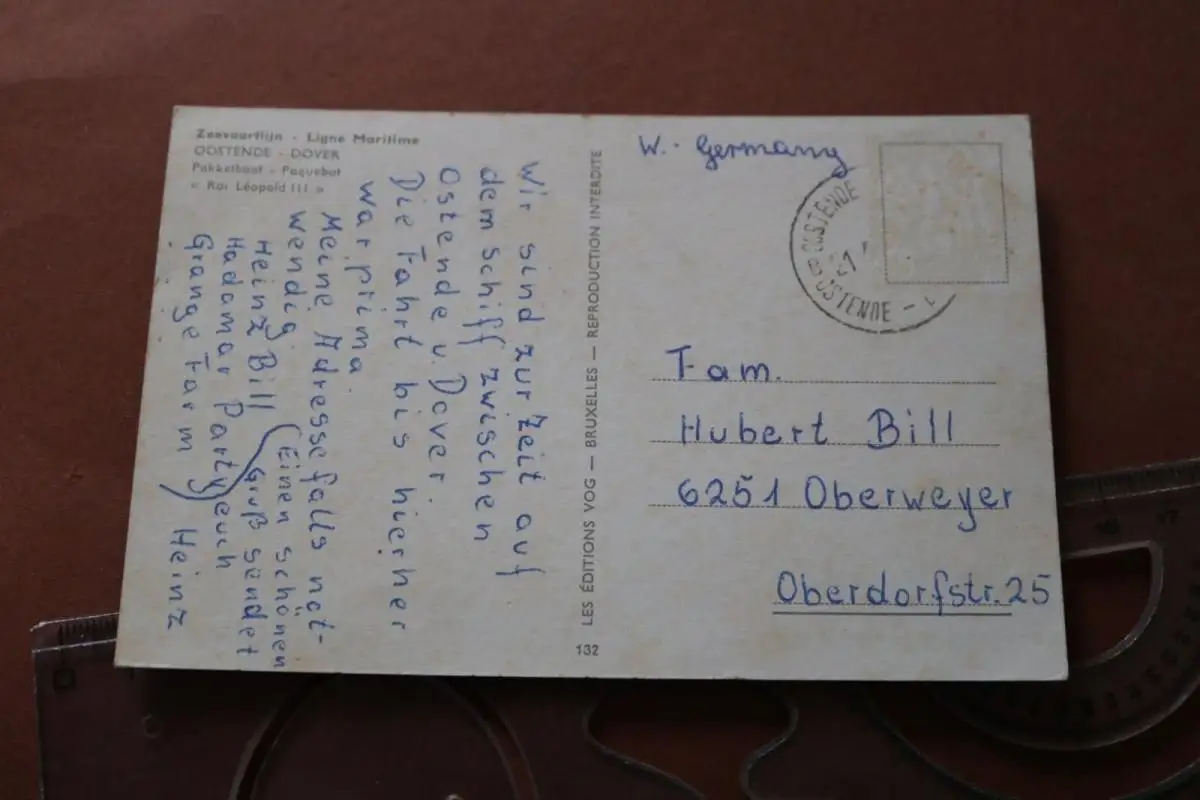 Zeevaartlijn - Ligne Maritime
OOSTENDE - DOVER
Pakketboot - Paquebot
« Roi Léopold III »
Wir sind zur Zeit auf
dem Schiff zwischen
Ostende u. Dover.
Die Fahrt bis hierher
war prima.
Meine Adresse falls not-
wendig
Heinz Bill
Hadamar Party
Grange Farm
(Einen schönen
Gruß sendet
euch
Heinz
LES ÉDITIONS VOG — BRUXELLES — REPRODUCTION INTERDITE
132
W.- Germany
OOSTENDE
OSTENDE
Fam.
Hubert Bill
6251 Oberweyer
Oberdorfstr. 25